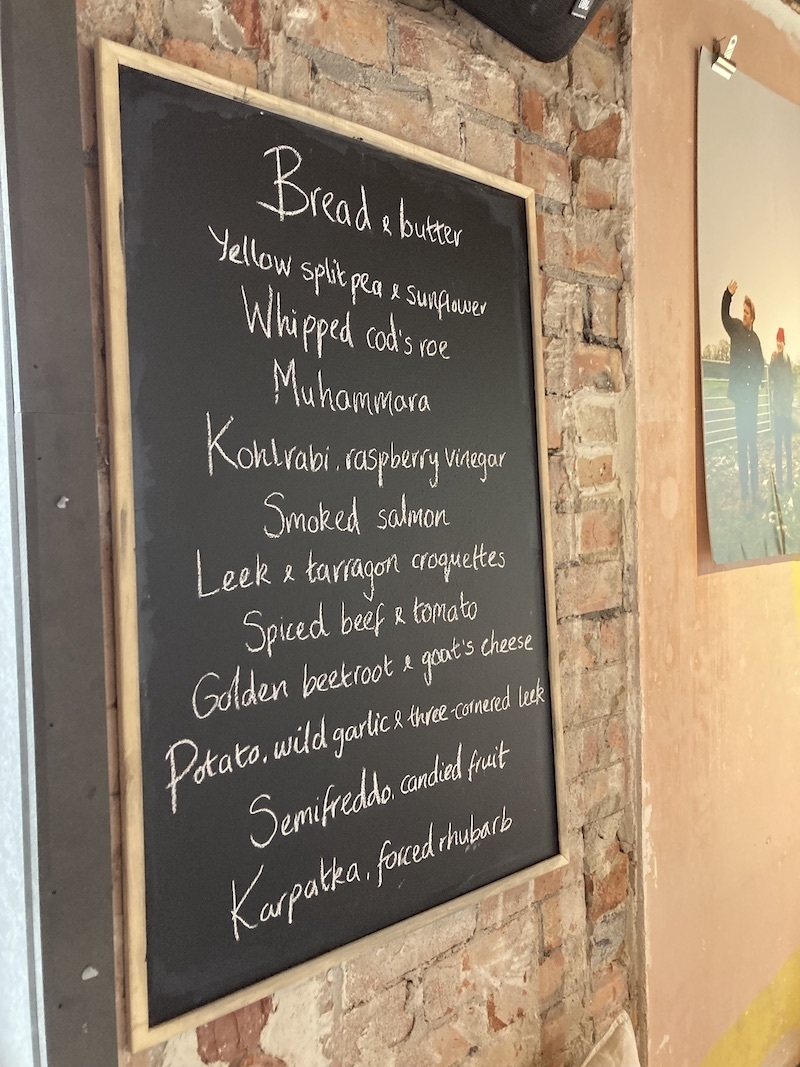 Bread & butter
Yellow split pea & sunflower
Whipped cod's roe
Muhammara
Kohlrabi, raspberry vinegar
Smoked salmon
Leek & tarragon croquettes
Spiced beef & tomato
Golden beetroot & goat's cheese
Potato, wild garlic & three-cornered leek
Semifreddo, candied fruit
Karpatka, forced rhubarb